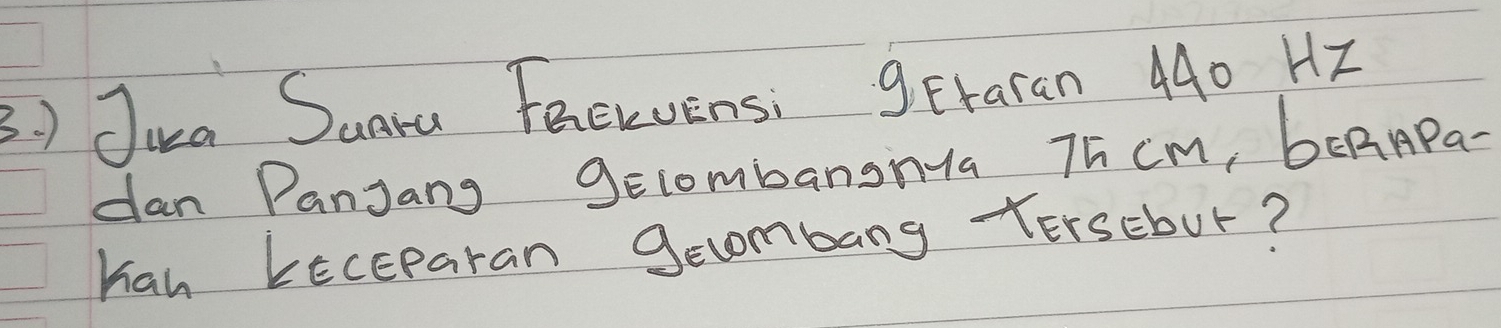 3.) Jika Suatu Frekuensi getaran 440 Hz
dan Panjang gelombangnya 75 cm, berapa-
kah kecepatan gelombang tersebut?